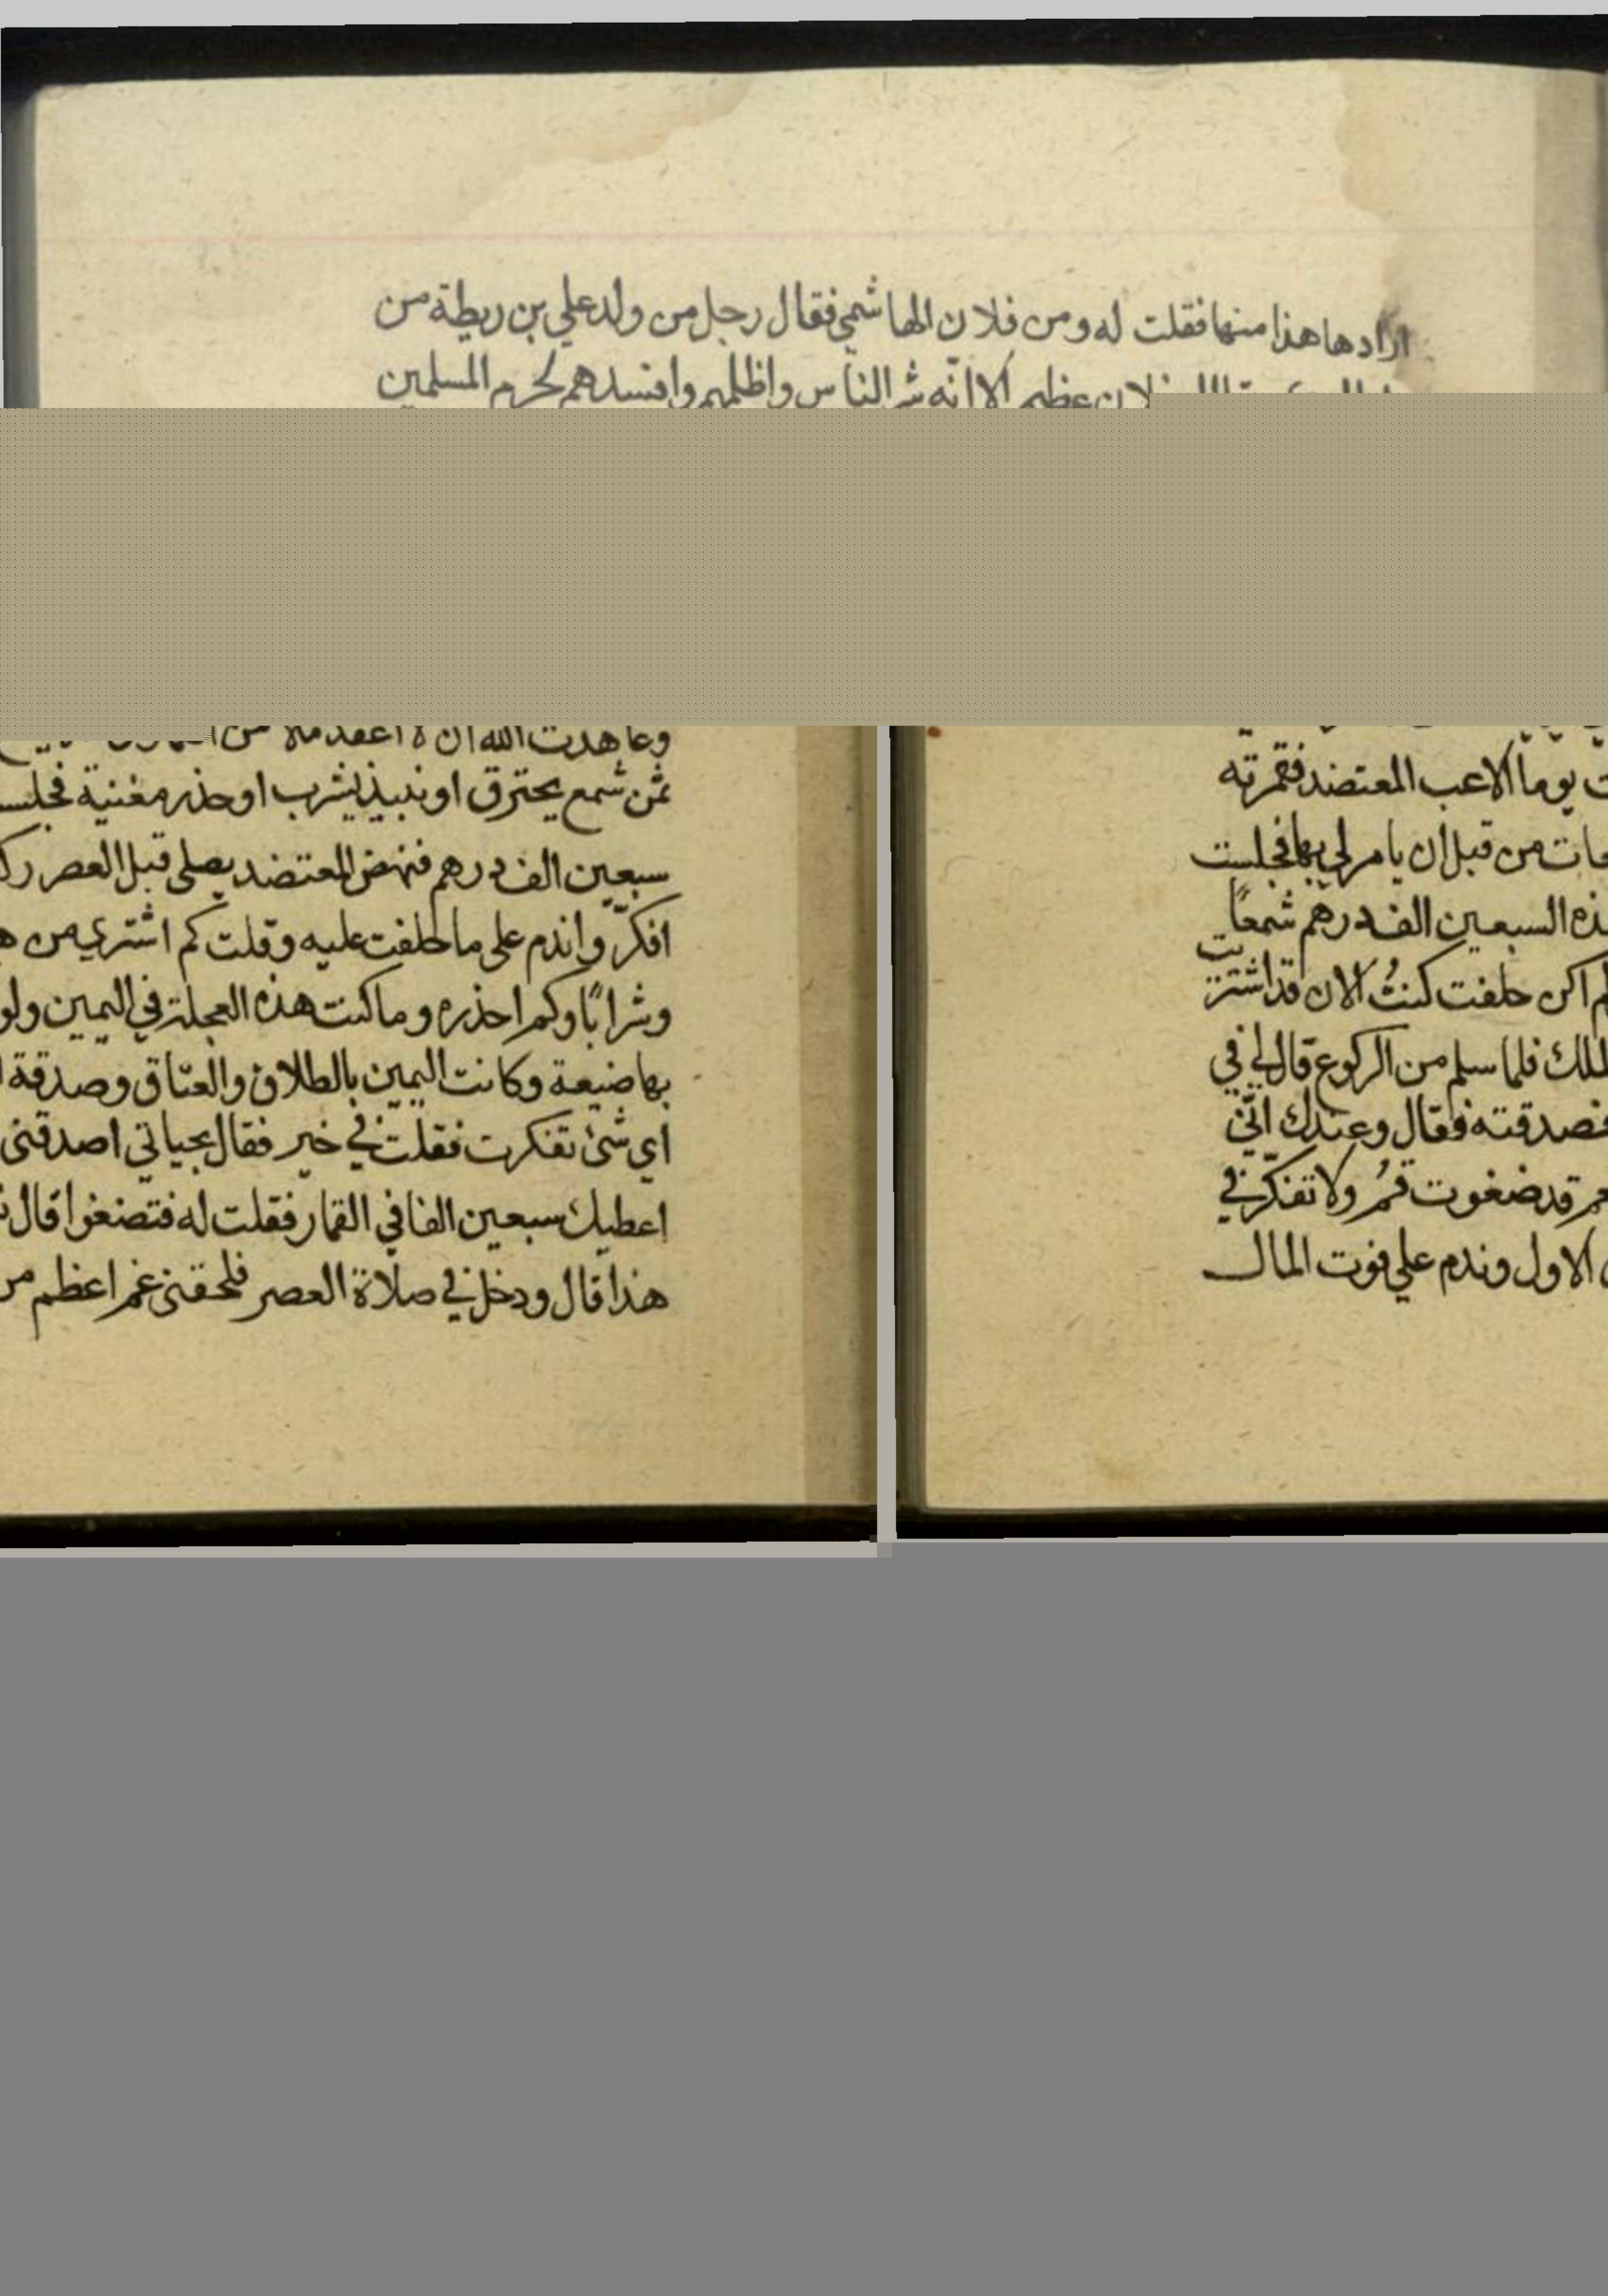 ارادها هذا منها فقلت له ومن فلان الهاشمي فقال رجل من ولد علي بن ريطة من
فلان عظيم الا انه شر الناس واظلمهم وافسدهم لحرم المسلمين
وعاهدت الله ان لا اعقد مالا من
ثمن شمع يحترق او نبيذ يشرب او حذر مغنية فجلست
سبعين الف درهم فنهض المعتضد يصلي قبل العصر
افكر واندم على ما حلفت عليه وقلت كم اشتري من
وشرابًا وكم احذره وما كنت هذه العجلة في اليمين ولو
بها ضيعة وكانت اليمين بالطلاق والعتاق وصدقة
اي شئ تفكرت فقلت في خير فقال بحياتي اصدقني
اعطيك سبعين الفا في القمار فقلت له فتضغوا قال
هذا قال ودخل في صلاة العصر فلحقني غم اعظم من
يوما الاعب المعتضد فقمرته
من قبل ان يامر لي بها فجلست
السبعين الف درهم شمعًا
اكن حلفت كنتُ الان قد اشتريت
فلما سلم من الركوع قال لي في
فصدقته فقال وعندك انّي
قد ضغوت قمُ ولا تفكّر في
الاول وندم علي فوت المال